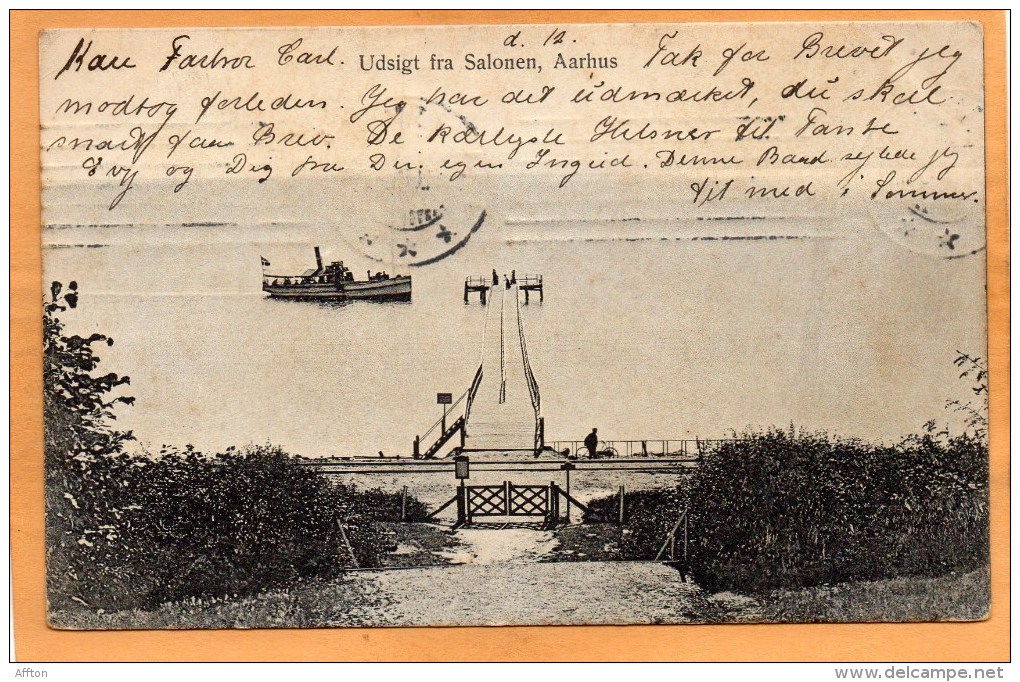 d. 12.
Kære Farbror Carl. Udsigt fra Salonen, Aarhus Tak for Brevet jeg
modtog forleden. Jeg har det udmærket, du skal
snart faa Brev. De kærligste Hilsner til Tante
Evy og Dig fra Din egen Ingrid. Denne Baad sejlede jeg
til med i Sommer.
Affton
http://www.delcampe.net